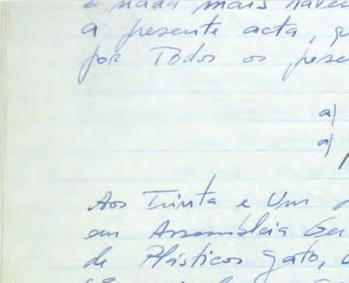 e nada mais haven
a presente acta, q
por Todos os prese
a)
a)
Aos Trinta e Um d
em Assembleia Ger
de Plásticos Gato,